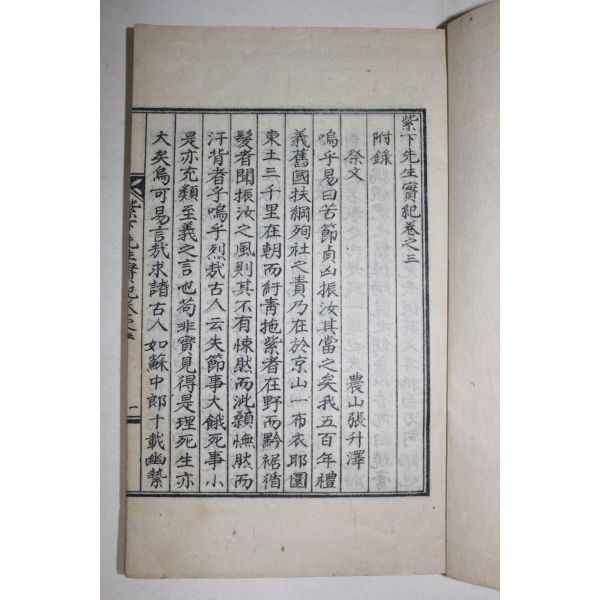 紫下先生實紀卷之三
附錄
祭文
農山張升澤
嗚乎易曰苦節貞凶振汝其當之矣我五百年禮
義舊國扶綱殉社之責乃在於京山一布衣耶圜
東土三千里在朝而紆靑拖紫者在野而黔裾循
髮者聞振汝之風則其不有悚然而泚顙憮然而
汗背者乎嗚乎烈哉古人云失節事大餓死事小
是亦充類至義之言也苟非實見得是理死生亦
大矣烏可易言哉求諸古人如蘇中郞十載幽縶
紫下先生實紀卷之三
一